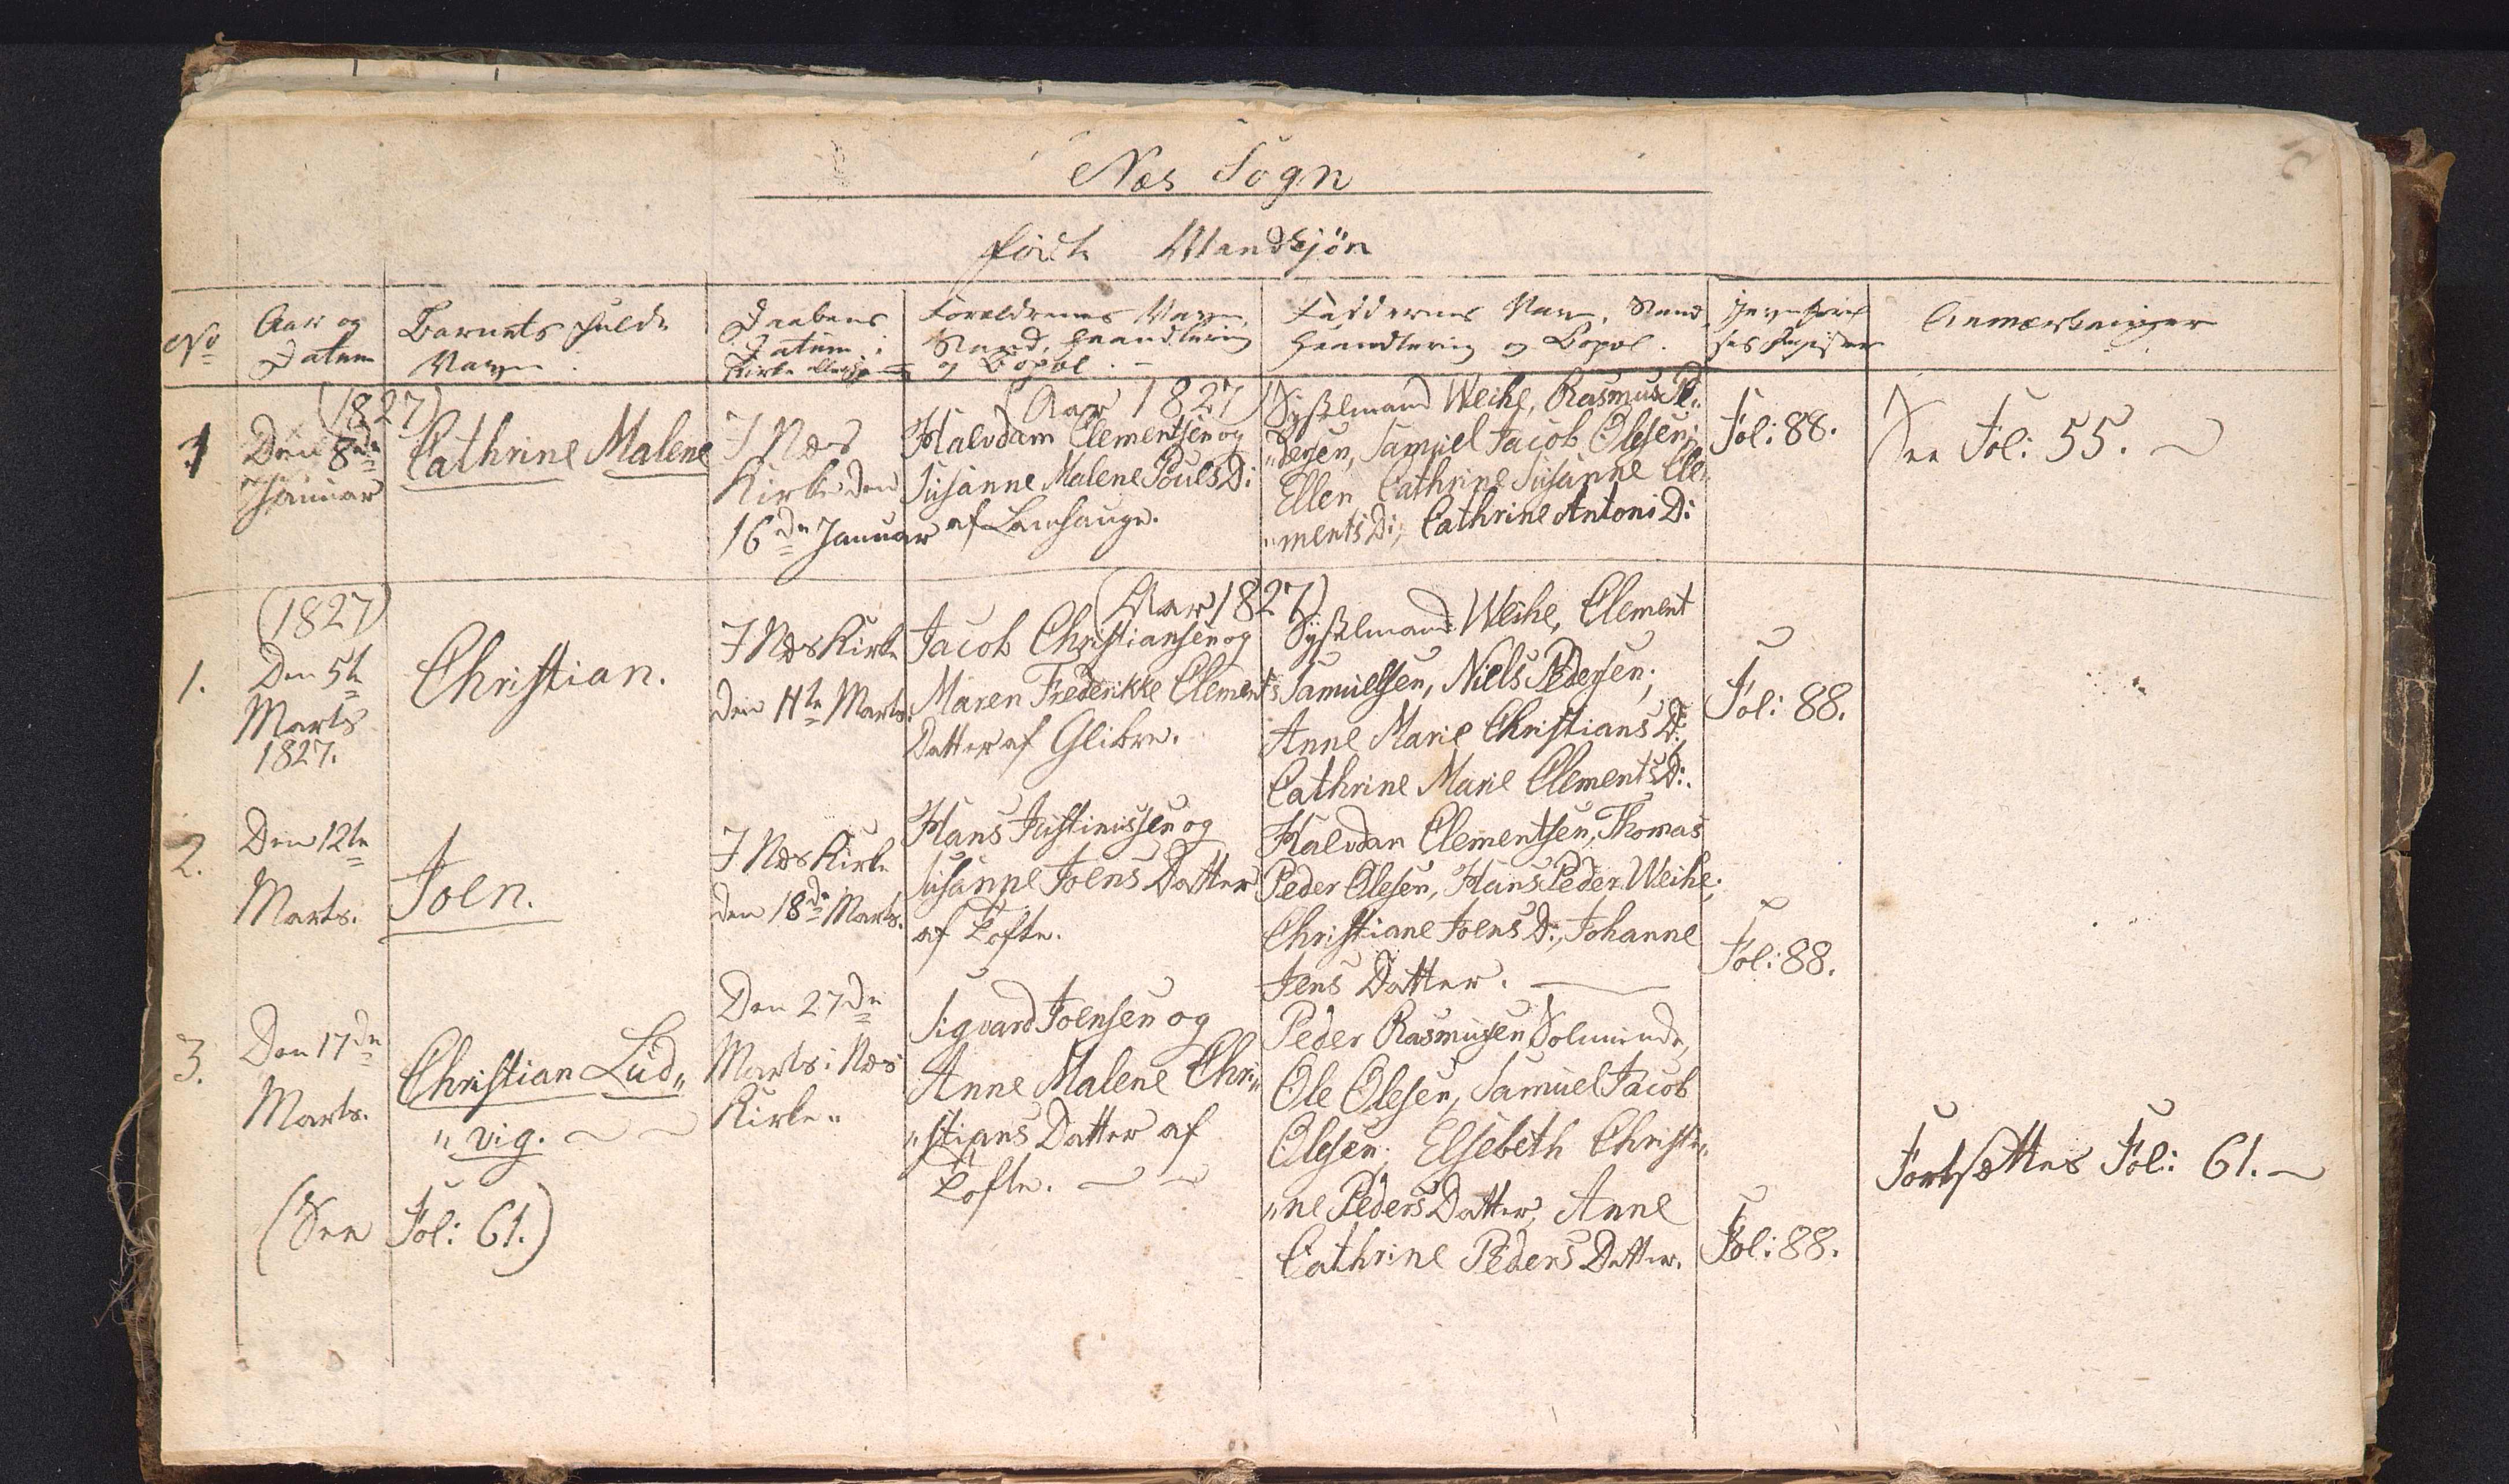 Næs Sogn
Födte Mandkjön
No
Aar og
Datum
Barnets fulde
Navn
Daabens
Datum i
Kirke eller hjemme
Forældrenes Navn,
Stand, Haandtering
og Bopæl.
Faddernes Navn, Stand,
Haandtering og Bopæl.
Jevnförel
ses Register
Anmærkninger
1
(1827)
Den 8de
Januar
Cathrine Malene
I Næs
Kirke den
16de Januar
(Aar 1827)
Halvdam Clementsen og
Susanne Malene Pouls D:
af Lamhauge.
Sysselmand Weihe, Rasmus Pe„
„dersen, Samuel Jacob Olesen;
Ellen Cathrine Susanne Cle„
„ments D:, Cathrine Antoni D:
Fol: 88.
See Fol: 55.
1.
(1827)
Den 5te
Marts
1827.
Christian.
I Næs Kirke
den 11te Marts.
(Aar 1827)
Jacob Christiansen og
Maren Frederikke Clements
Datter af Glibre.
Sysselmand Weihe, Clement
Samuelsen, Niels Pedersen;
Anne Marie Christians D:,
Cathrine Marie Clements D:.
Fol: 88.
2.
Den 12te
Marts.
Joen.
I Næs Kirke
den 18de Marts.
Hans Justinussen og
Susanne Joens Datter
af Tofte.
Halvdan Clementsen, Thomas
Peder Olesen, Hans Peder Weihe;
Christiane Joens D:, Johanne
Jens Datter.
Fol: 88.
3.
Den 17de
Marts.
Christian Lud„
„vig.
Den 27de
Marts i Næs
Kirke.
Sigvard Joensen og
Anne Malene Chri„
„stians Datter af
Tofte.
Peder Rasmusen Solmunde,
Ole Olesen, Samuel Jacob
Olesen; Elsebeth Christi„
„ne Peders Datter, Anne
Cathrine Peders Datter.
Fol: 88.
Fortsættes Fol: 61.
(See Fol: 61.)